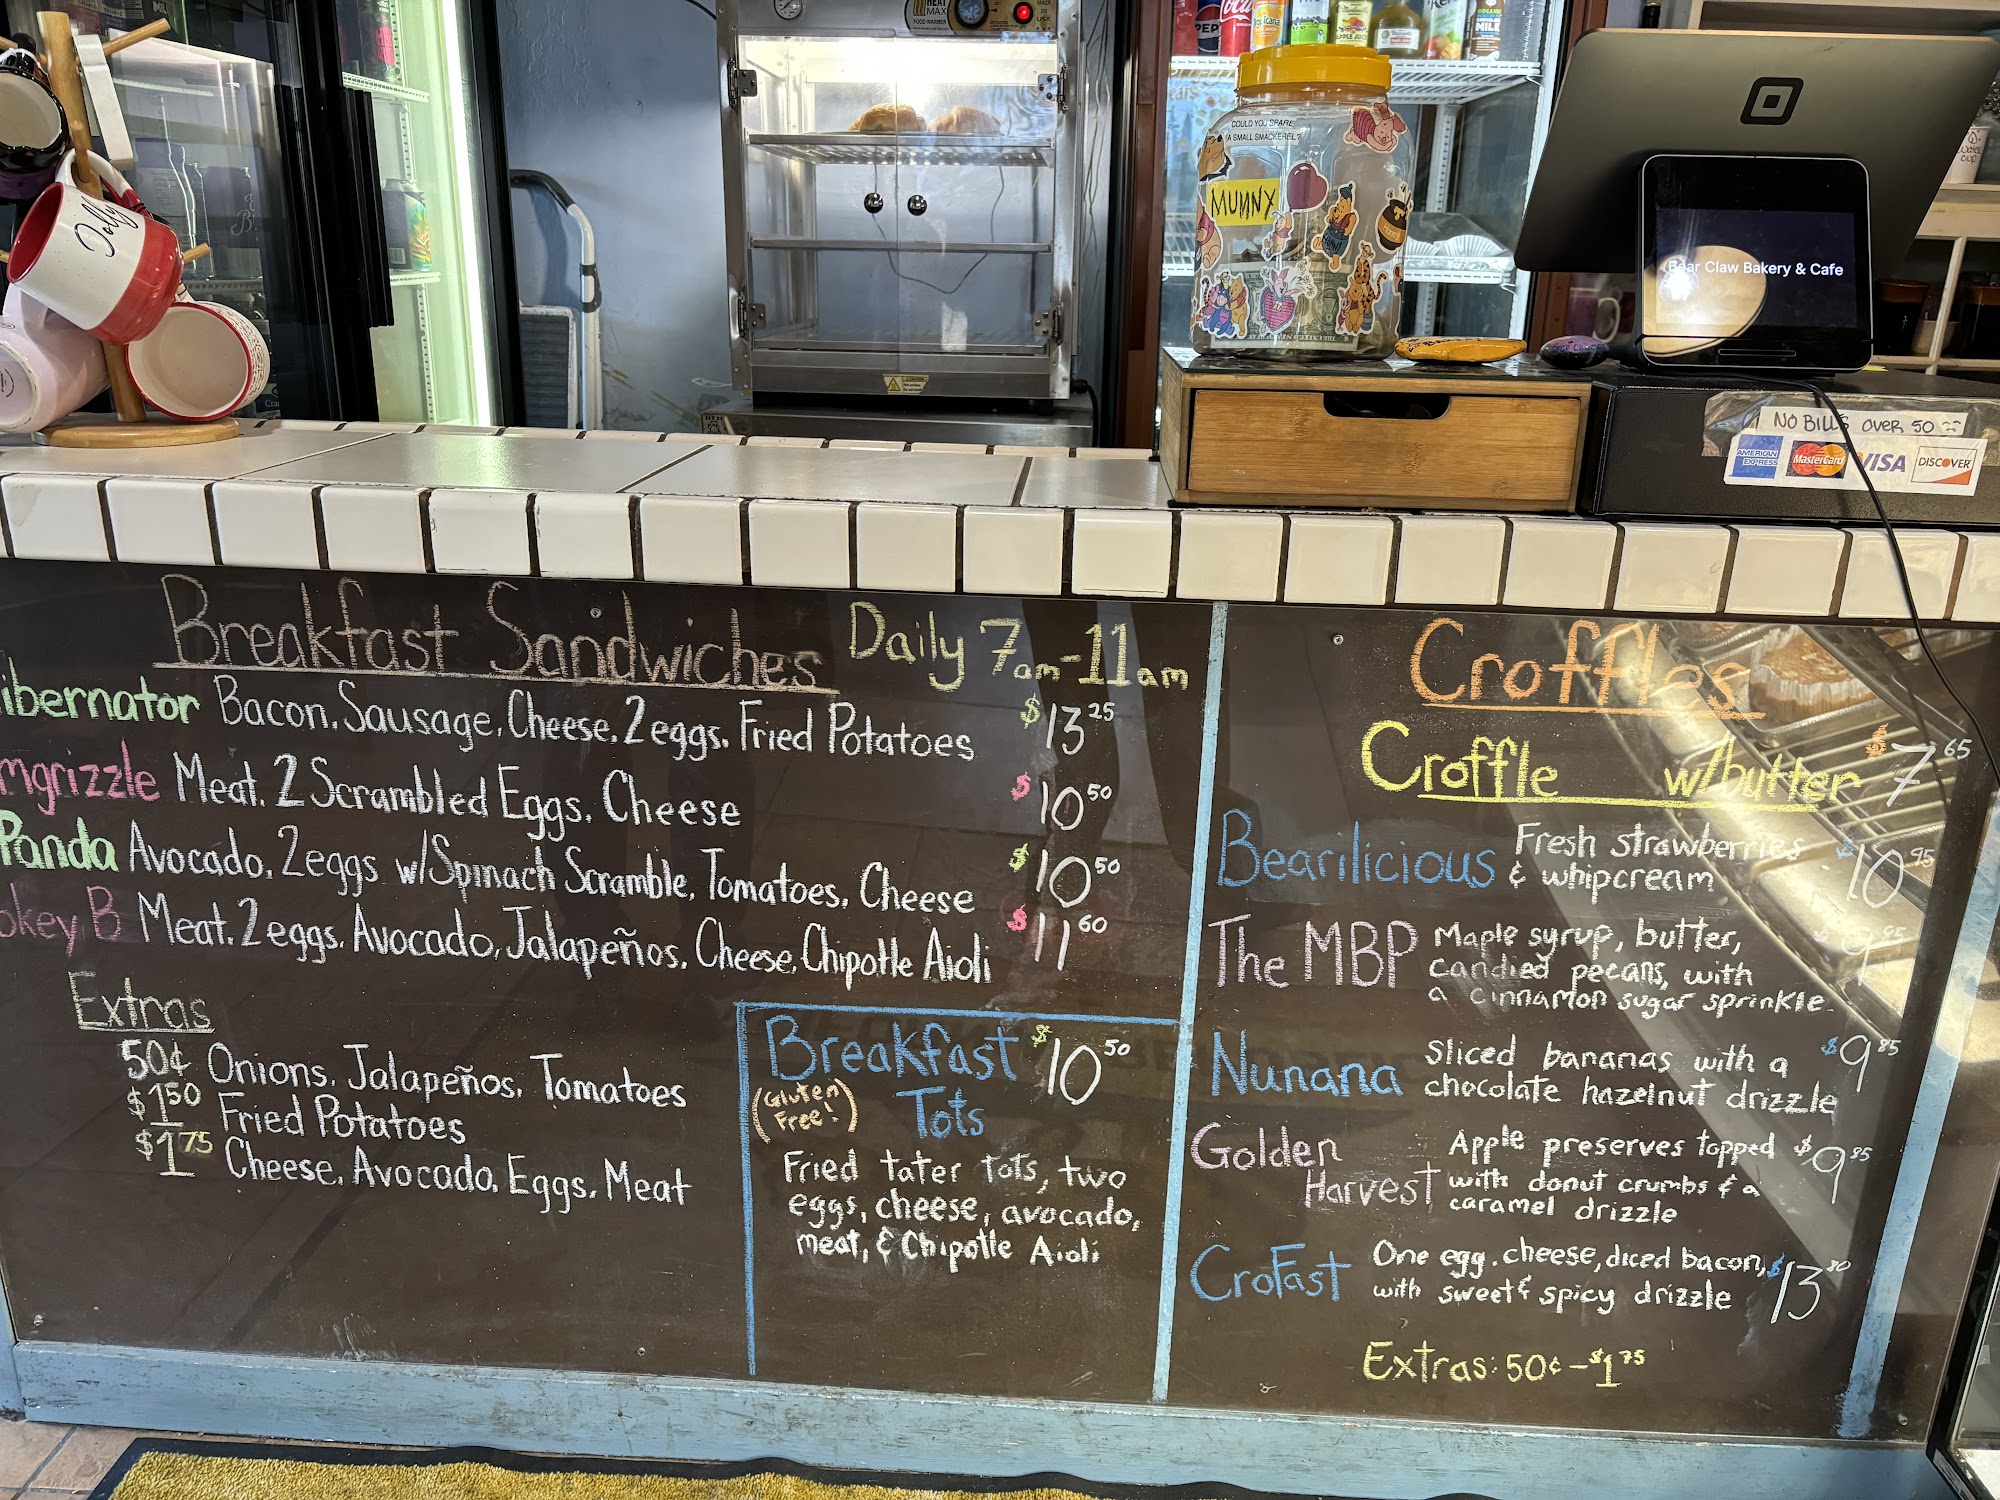 HEAT
MAX
FOOD WARMER
MADE
IN
USA
PEPSI
Coca
Tropicana
APPLE JUICE
ORGANIC
MILK
COULD YOU SPARE
A SMALL SMACKEREL?
MUNNY
Jolly
Bear Claw Bakery & Cafe
NO BILLS OVER 50
AMERICAN
EXPRESS
MasterCard
VISA
DISCOVER
CAUTION
Breakfast Sandwiches Daily 7am-11am
ibernator Bacon, Sausage, Cheese, 2 eggs, Fried Potatoes $13 25
mgrizzle Meat, 2 Scrambled Eggs, Cheese $10 50
Panda Avocado, 2 eggs w/Spinach Scramble, Tomatoes, Cheese $10 50
okey B Meat, 2 eggs, Avocado, Jalapeños, Cheese, Chipotle Aioli $11 60
Extras
50¢ Onions, Jalapeños, Tomatoes
$1 50 Fried Potatoes
$1 75 Cheese, Avocado, Eggs, Meat
Breakfast $10 50
(Gluten Free!) Tots
Fried tater tots, two
eggs, cheese, avocado,
meat, & Chipotle Aioli
Croffles
Croffle w/butter $7 65
Bearilicious Fresh strawberries $10 95
& whipcream
The MBP Maple syrup, butter, $9 95
candied pecans, with
a cinnamon sugar sprinkle.
Nunana Sliced bananas with a $9 85
chocolate hazelnut drizzle
Golden Apple preserves topped $9 85
Harvest with donut crumbs & a
caramel drizzle
CroFast One egg, cheese, diced bacon, $13 80
with sweet & spicy drizzle
Extras: 50¢ - $1 75